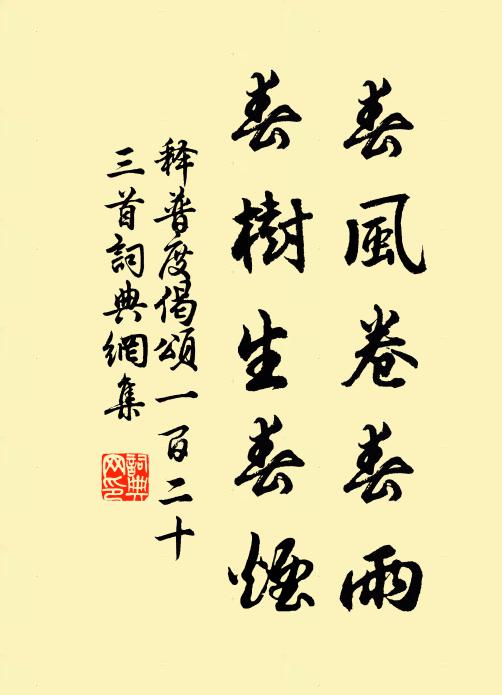 春風卷春雨
春樹生春煙
释普度偈頌一百二十
三首詞典網集
詞典
网印